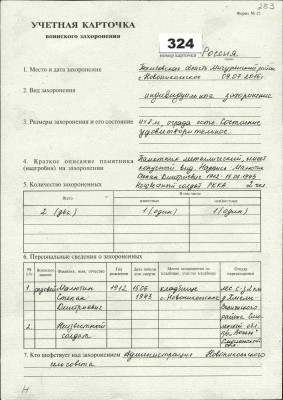 283
Форма № 25
УЧЕТНАЯ КАРТОЧКА
воинского захоронения
324
номер карточки
Россия
1. Место и дата захоронения
область Мичуринский район
с. Новоникольское 09.07.2016г.
2. Вид захоронения
индивидуальное захоронение
3. Размеры захоронения и его состояние
ограда есть. Состояние
удовлетворительное
4. Краткое описание памятника
(надгробия) на захоронении
Памятник металлический, имеет
вид. Надпись Малютин
Степан Дмитриевич 1912 - 15.06.1943
Неизвестный солдат РККА
5. Количество захороненных
Всего
В том числе
известных
неизвестных
2 (два)
1 (один)
1 (один)
6. Персональные сведения о захороненных
№ п/п
Воинское звание
Фамилия, имя, отчество
Год рождения
Дата гибели или смерти
Место захоронения на кладбище, участке кладбища
Откуда перезахоронен
1. рядовой Малютин Степан Дмитриевич 1912 15.06 1943 кладбище с. Новоникольское
2. Неизвестный солдат
7. Кто шефствует над захоронением
Администрация Новоникольского
сельсовета